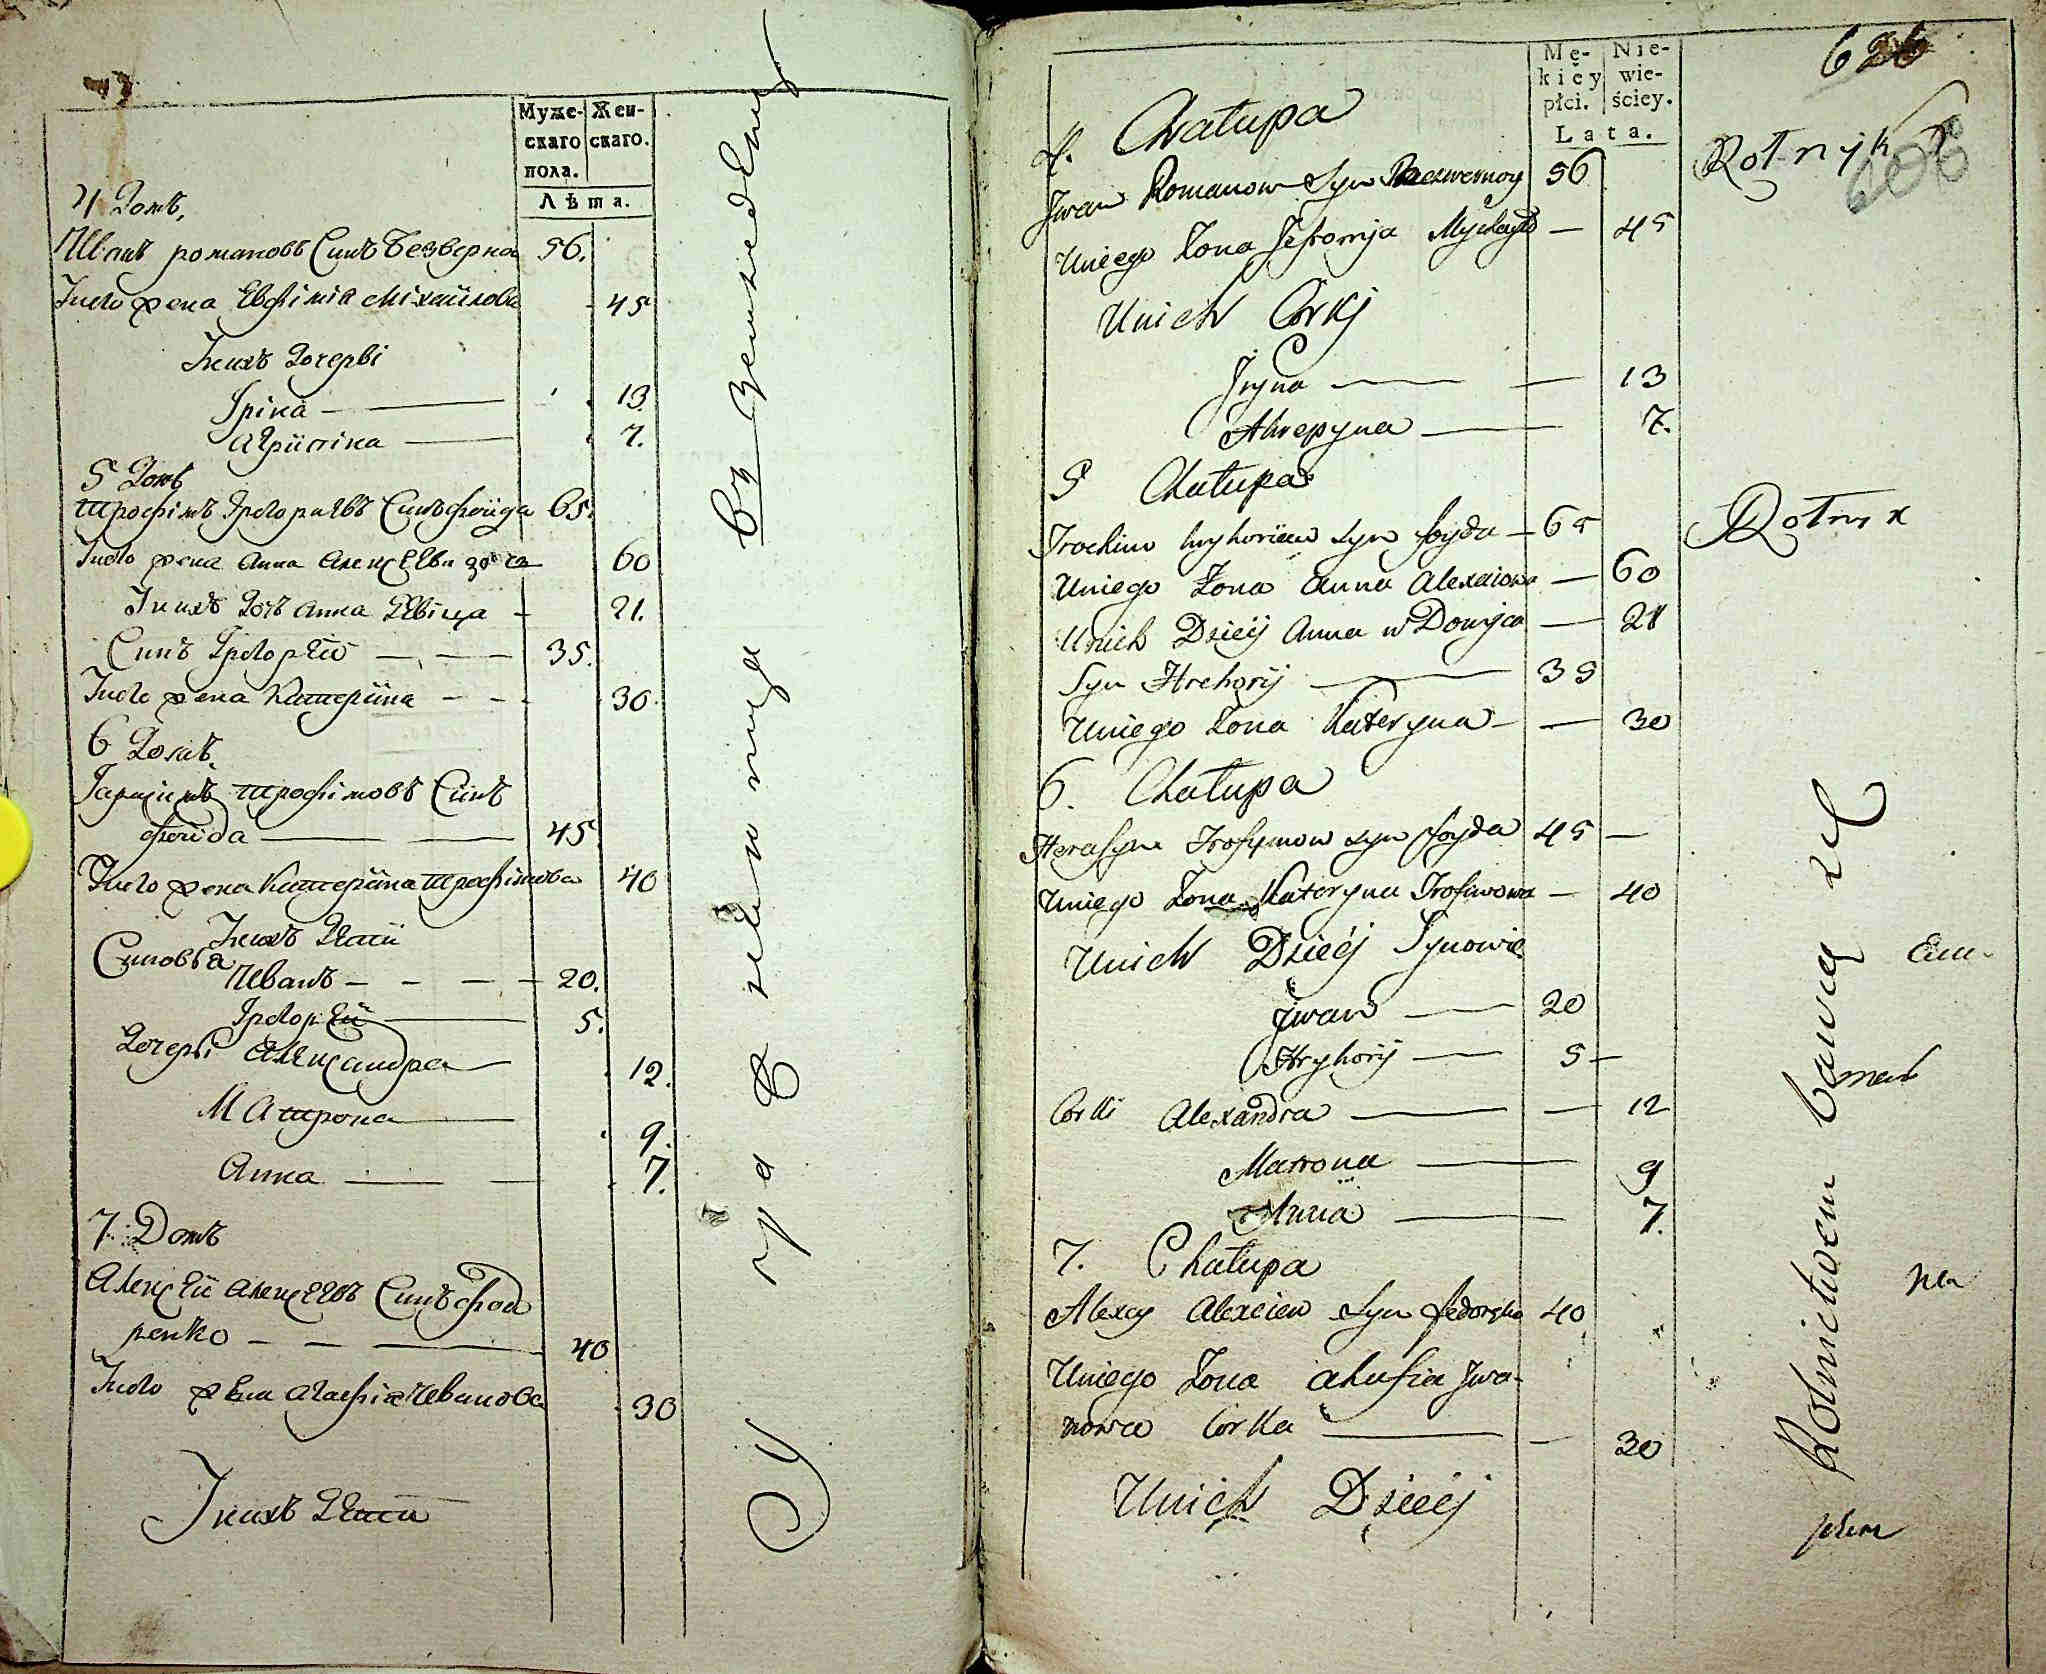 Муже-
скаго
пола.
Жен-
скаго.
Лѣта.
4 Домъ,
Иванъ романовъ Синъ Безверха 56.
Уного жена Евфіміа Міхайлова 45
Унихъ Дочерві
Іріна 13.
агрипіна 7.
5 Домъ
Трофімъ Григориевъ Синъ фойда 65.
Уного жена анна алексеева дочка 60
Унихъ дочъ анна девіца 21.
Синъ Григорей 35.
Уного жена Катерііна 30.
6 Домъ.
Гарасимъ трофімовъ Синъ
фойда 45
Уного жена Катерііна трофімова 40
Унихъ Дети
Синовѣа
Иванъ 20.
Григорей 5.
Дочерві александра 12.
Матрона 9.
анна 7.
7: Домъ
алексей алексеевъ Синъ фед
ренко 40
Уного жена агафіа Иванова 30
Унихъ Дети
въ земледелиі
Mę-
kiéy
płci.
Nie-
wie-
ściey.
Lata.
626
608
4. Chałupa
Rotnyk
Jwan Romanow Syn Bezwernoy 56
Uniego Żona Jefromja Mychayło 45
Unich Corkj
Jryna 13
Ahrepyna 7.
5 Chałupa
Rotnik
Trochim hryhoriew syn foyda 65
Uniego Żona Anna Alexaiowa 60
Unich Dzieij Anna w Domjca 21
Syn Hrehorij 35
Uniego Żona Kateryna 30
6. Chałupa
Herasym Trofymow syn foyda 45
Uniego Żona Kateryna Trofimowa 40
Unich Dzieéj Synowie
Jwan 20
Hryhorij 5
Corki Alexandra 12
Matrona 9
Anna 7.
7. Chałupa
Alexy Alexciew Syn fedorenko 40
Uniego Żona ahafia Jwa-
nowa Corka 30
Unich Dzieéj
Rolnictwem bawią się